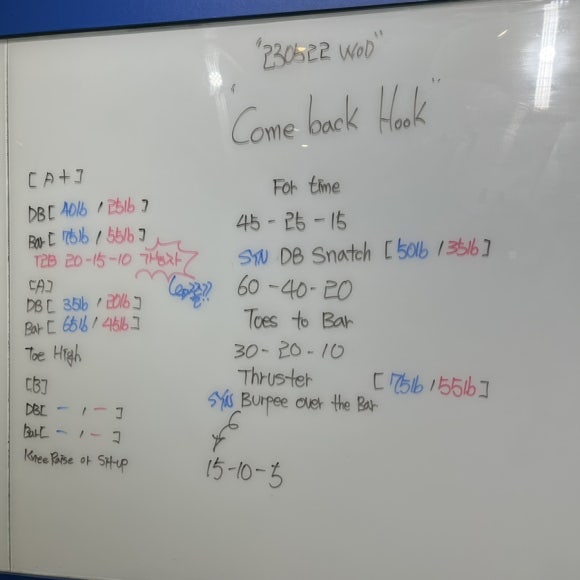 "230522 WOD"
"Come back Hook"
[A+]
DB [ 40lb / 25lb ]
Bar [ 75lb / 55lb ]
T2B 20-15-10
[A]
DB [ 35lb / 20lb ]
Bar [ 65lb / 45lb ]
Toe High
[B]
DB[ - / - ]
Bar[ - / - ]
Knee Raise or Sit-up
For time
45 - 25 - 15
SYN DB Snatch [50lb / 35lb]
60 - 40 - 20
Toes to Bar
30 - 20 - 10
Thruster [75lb / 55lb]
SYN Burpee over the Bar
15-10-5